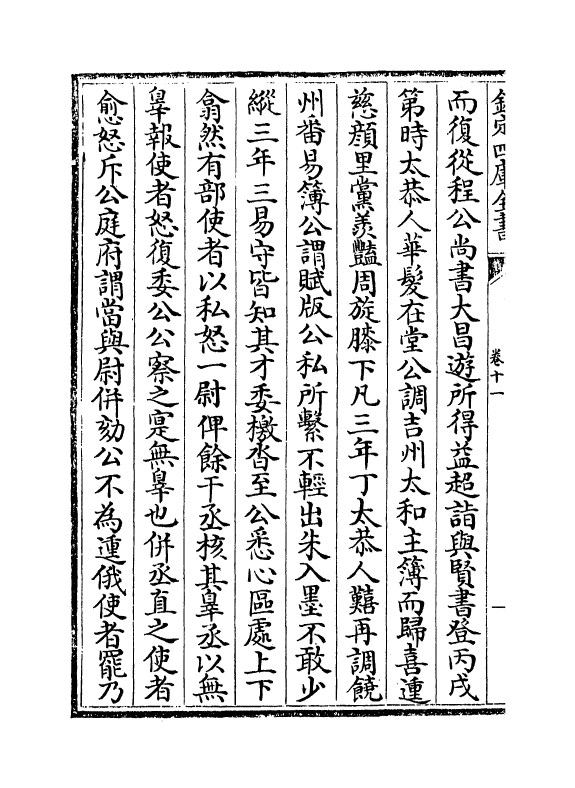 欽定四庫全書
卷十一
一
而復從程公尚書大昌遊所得益超詣與賢書登丙戌
第時太恭人華髮在堂公調吉州太和主簿而歸喜連
慈顔里黨羡豔周旋膝下凡三年丁太恭人囏再調饒
州番昜簿公謂賦版公私所繫不輕出朱入墨不敢少
縱三年三易守皆知其才委檄沓至公悉心區處上下
翕然有部使者以私怒一尉俾餘干丞核其辠丞以無
辠報使者怒復委公公察之寔無辠也併丞直之使者
愈怒斥公庭府謂當與尉併劾公不為連俄使者罷乃